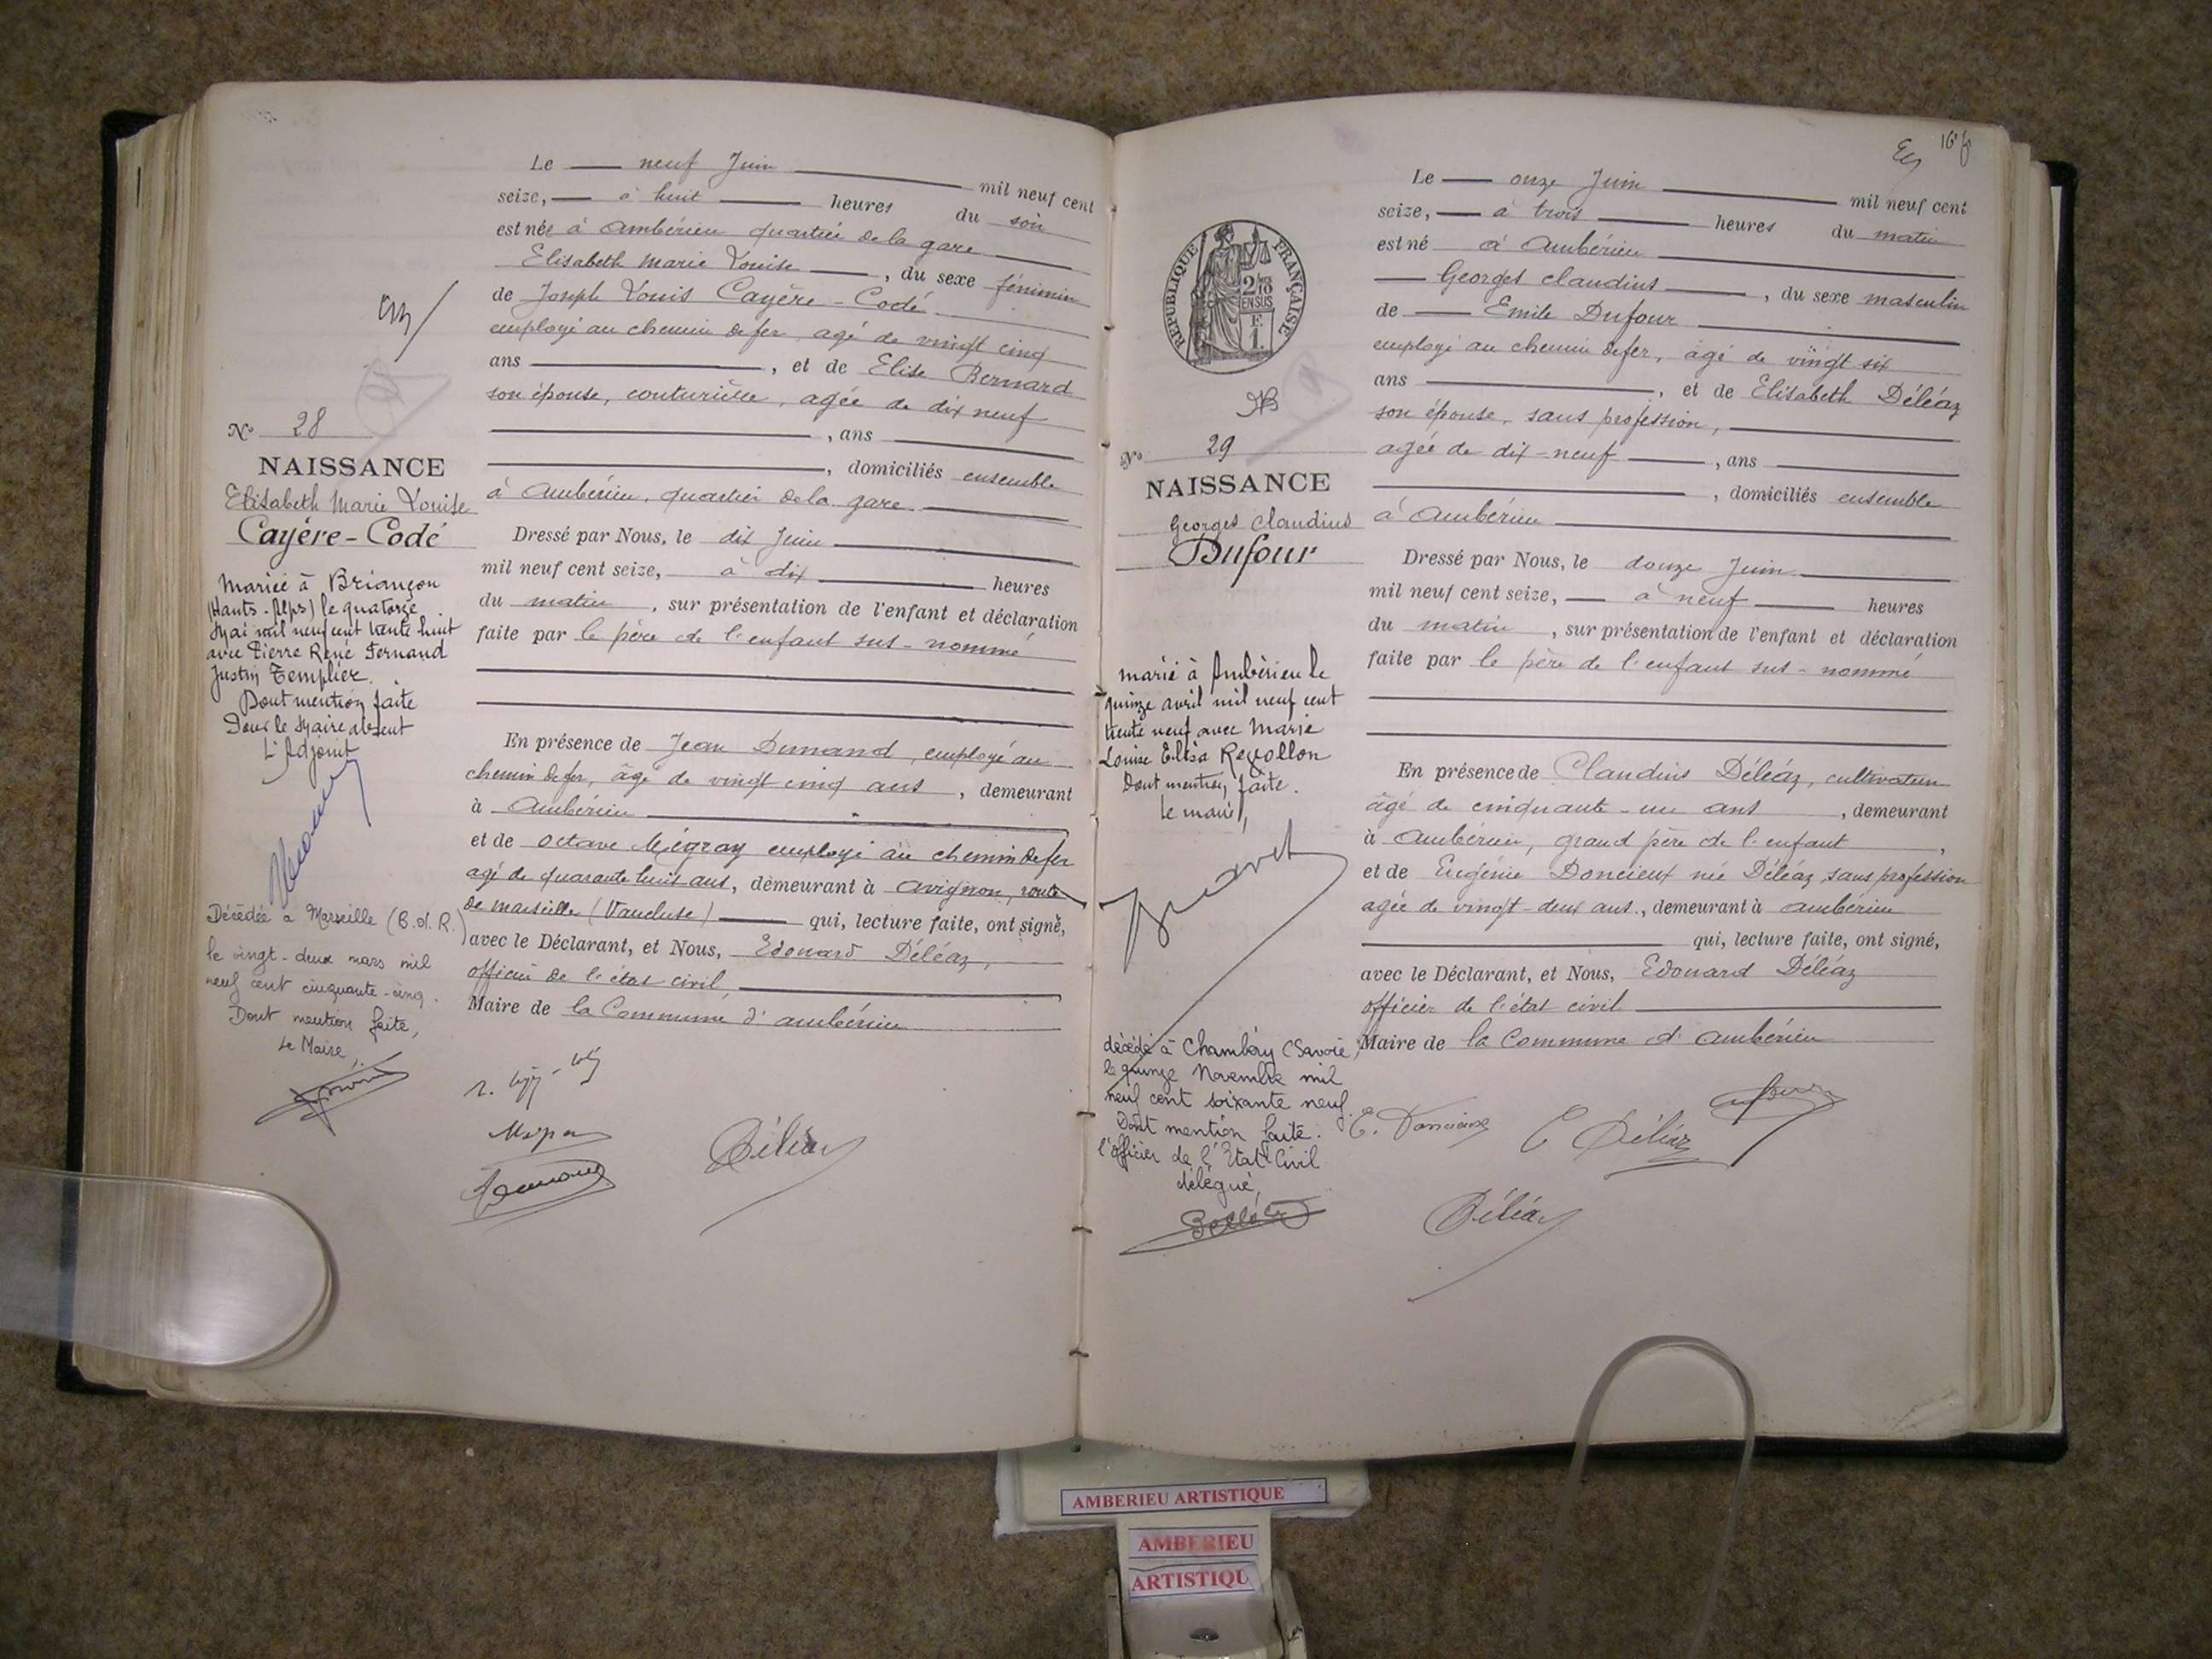 Le neuf Juin mil neuf cent
seize, à huit heures du soir
est née à Ambérieu quartier de la gare
Elisabeth Marie Louise, du sexe féminin
de Joseph Louis Cayère-Codé
employé au chemin de fer, agé de vingt cinq
ans, et de Elise Bernard
son épouse, couturière, agée de dix neuf
, ans
, domiciliés ensemble
à Ambérieu, quartier de la gare.
Dressé par Nous, le dix Juin
mil neuf cent seize, à dix heures
du matin, sur présentation de l'enfant et déclaration
faite par le père de l'enfant sus-nommé
En présence de Jean Dumand, employé au
chemin de fer, âgé de vingt cinq ans, demeurant
à Ambérieu
et de Octave Mégray employé au chemin de fer
agé de quarante huit ans, demeurant à Avignon, route
de Marseille (Vaucluse) qui, lecture faite, ont signé,
avec le Déclarant, et Nous, Edouard Déléaz,
officier de l'état civil,
Maire de la Commune d'Ambérieu
Déléaz
N° 28
NAISSANCE
Elisabeth Marie Louise
Cayère-Codé
Mariée à Briançon
(Hautes-Alpes) le quatorze
Mai mil neuf cent trente huit
avec Pierre René Fernand
Justin Templier.
Dont mention faite
Pour le Maire absent
L'Adjoint
Décédée à Marseille (B.d.R.)
le vingt-deux mars mil
neuf cent cinquante-cinq.
Dont mention faite,
Le Maire,
16e f°
RÉPUBLIQUE FRANÇAISE
2/10
EN SUS
F.
1.
N° 29
NAISSANCE
Georges Claudius
Dufour
marié à Ambérieu le
quinze avril mil neuf cent
trente neuf avec Marie
Louise Elisa Revollon
Dont mention faite.
Le maire,
décédé à Chambéry (Savoie)
le quinze Novembre mil
neuf cent soixante neuf.
Dont mention faite.
l'Officier de l'Etat Civil
délégué,
Le onze Juin mil neuf cent
seize, à trois heures du matin
est né à Ambérieu
Georges Claudius, du sexe masculin
de Emile Dufour
employé au chemin de fer, âgé de vingt six
ans, et de Elisabeth Déléaz
son épouse, sans profession,
agée de dix-neuf, ans
, domiciliés ensemble
à Ambérieu
Dressé par Nous, le douze Juin
mil neuf cent seize, à neuf heures
du matin, sur présentation de l'enfant et déclaration
faite par le père de l'enfant sus-nommé
En présence de Claudius Déléaz, cultivateur
âgé de cinquante-un ans, demeurant
à Ambérieu, grand père de l'enfant,
et de Eugénie Doncieux née Déléaz, sans profession
agée de vingt-deux ans, demeurant à Ambérieu
qui, lecture faite, ont signé,
avec le Déclarant, et Nous, Edouard Déléaz
officier de l'état civil
Maire de la Commune d'Ambérieu
E. Doncieux C Déléaz
Déléaz
AMBERIEU ARTISTIQUE
AMBERIEU
ARTISTIQU